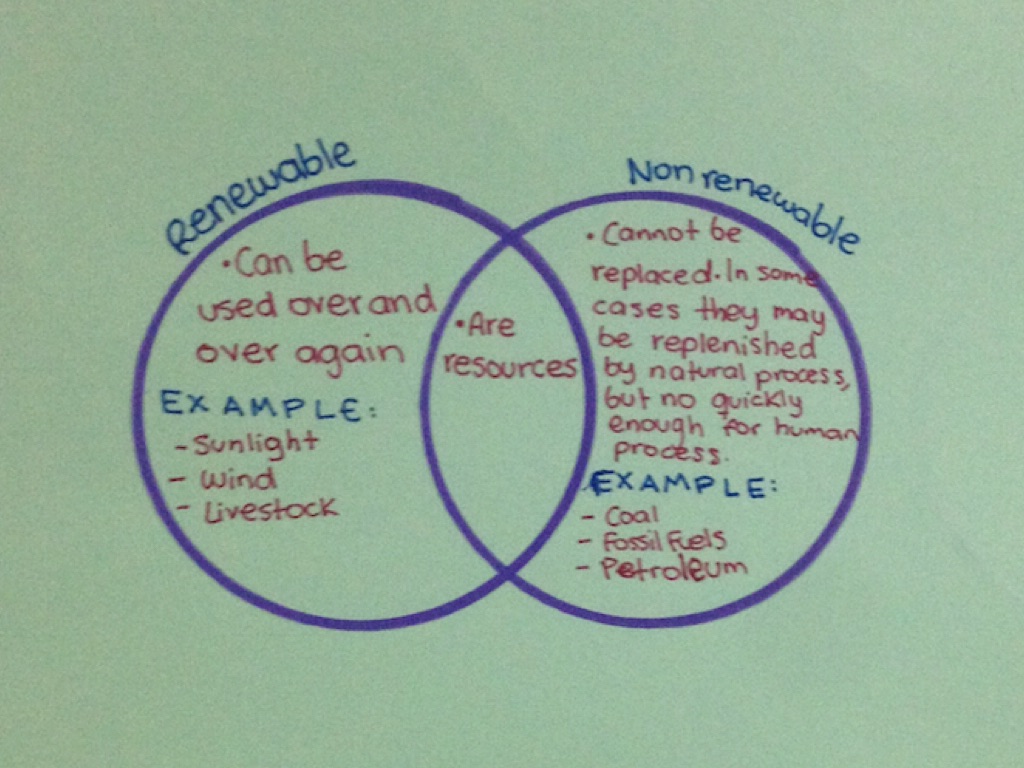 Renewable
• Can be
used over and
over again
EXAMPLE:
- Sunlight
- Wind
- Livestock
• Are
resources
Non renewable
• Cannot be
replaced. In some
cases they may
be replenished
by natural process,
but no quickly
enough for human
process.
EXAMPLE:
- Coal
- Fossil Fuels
- Petroleum